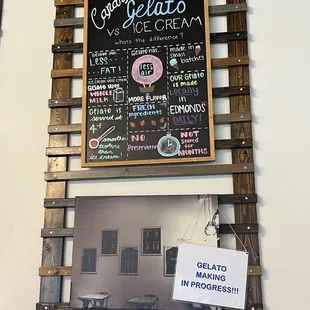 Gelato
vs ICE CREAM
what's the difference?
GELATO HAS
LESS
...FAT!
GELATO USES
WHOLE
MILK
GELATO IS
served at
4°
smoother
texture than
ICE CREAM
GELATO HAS
less
air
MORE FLAVOR
FRESH
INGREDIENTS
NO
Preservatives
made in
small
batches
OUR GELATO
is made
locally
in
EDMONDS
DAILY!
NOT
STORED
FOR
MONTHS
GELATO
MAKING
IN PROGRESS!!!